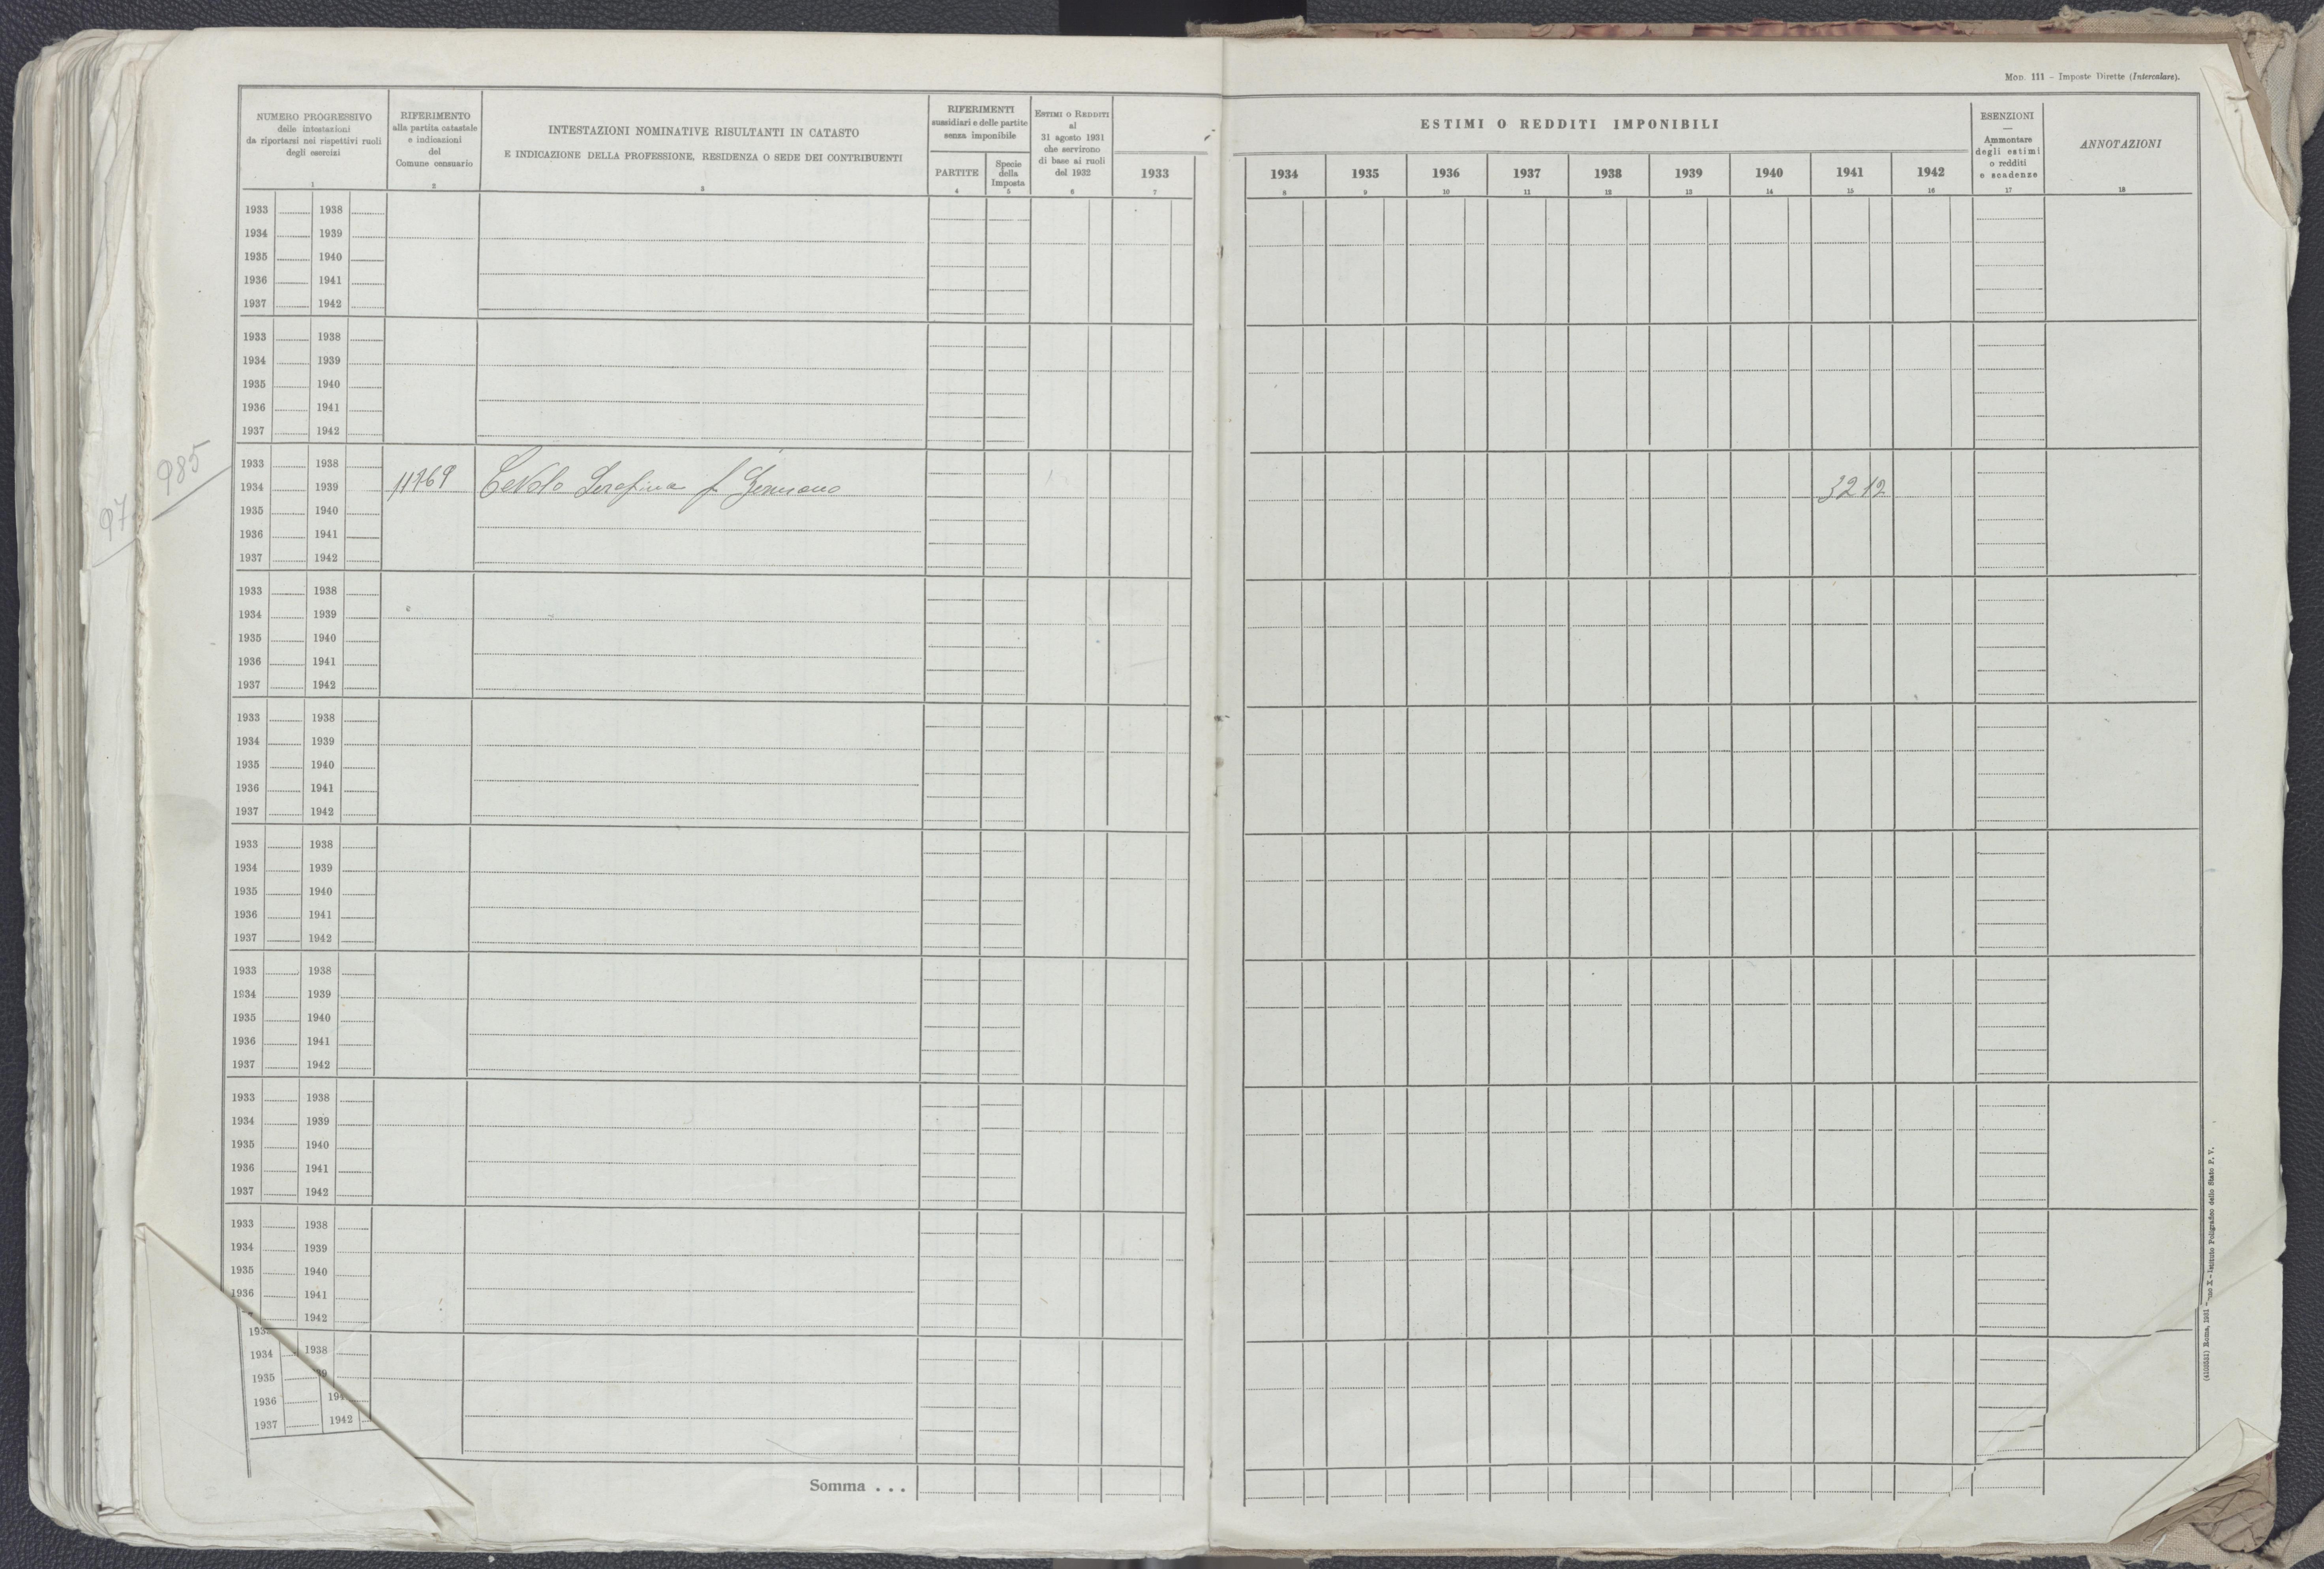 Mod. 111 - Imposte Dirette (Intercalare).
NUMERO PROGRESSIVO
delle intestazioni
da riportarsi nei rispettivi ruoli
degli esercizi
1
RIFERIMENTO
alla partita catastale
e indicazioni
del
Comune censuario
2
INTESTAZIONI NOMINATIVE RISULTANTI IN CATASTO
E INDICAZIONE DELLA PROFESSIONE, RESIDENZA O SEDE DEI CONTRIBUENTI
3
RIFERIMENTI
sussidiari e delle partite
senza imponibile
PARTITE
4
Specie
della
Imposta
5
ESTIMI O REDDITI
al
31 agosto 1931
che servirono
di base ai ruoli
del 1932
6
1933
7
ESTIMI O REDDITI IMPONIBILI
1934 1935 1936 1937 1938 1939 1940 1941 1942
8 9 10 11 12 13 14 15 16
ESENZIONI
—
Ammontare
degli estimi
o redditi
e scadenze
17
ANNOTAZIONI
18
1933 1938
1934 1939
1935 1940
1936 1941
1937 1942
1933 1938
1934 1939
1935 1940
1936 1941
1937 1942
985
97
1933 1938
1934 1939 11769 Serafina f Germano 32 12
1935 1940
1936 1941
1937 1942
1933 1938
1934 1939
1935 1940
1936 1941
1937 1942
1933 1938
1934 1939
1935 1940
1936 1941
1937 1942
1933 1938
1934 1939
1935 1940
1936 1941
1937 1942
1933 1938
1934 1939
1935 1940
1936 1941
1937 1942
1933 1938
1934 1939
1935 1940
1936 1941
1937 1942
1933 1938
1934 1939
1935 1940
1936 1941
1942
1938
1934
1935
1936
1937 1942
Somma . . .
Istituto Poligrafico dello Stato P. V.